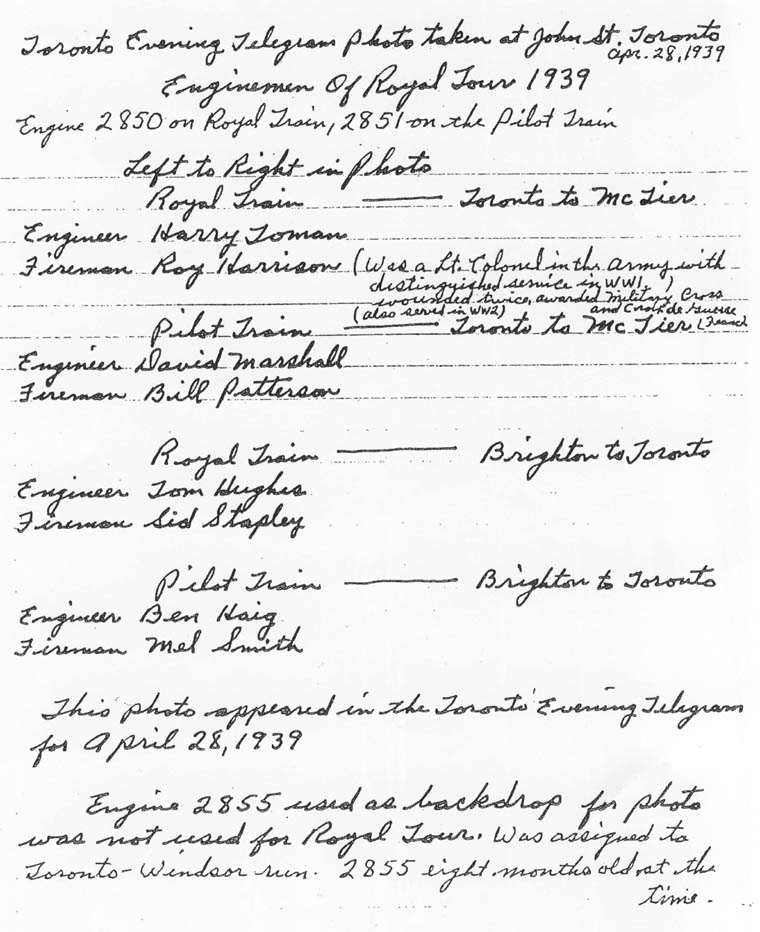 Toronto Evening Telegram Photo taken at John St. Toronto
Apr. 28, 1939
Enginemen Of Royal Tour 1939
Engine 2850 on Royal Train, 2851 on the Pilot Train
Left to Right in Photo
Royal Train —— Toronto to McTier
Engineer Harry Toman
Fireman Roy Harrison (Was a Lt. Colonel in the Army with
distinguished service in WW1, )
wounded twice, awarded Military Cross
(also served in WW2) and Croix de Guerre
Pilot Train —— Toronto to McTier (France)
Engineer David Marshall
Fireman Bill Patterson
Royal Train —— Brighton to Toronto
Engineer Tom Hughes
Fireman Sid Stapley
Pilot Train —— Brighton to Toronto
Engineer Ben Haig
Fireman Mel Smith
This photo appeared in the Toronto Evening Telegram
for April 28, 1939
Engine 2855 used as backdrop for photo
was not used for Royal Tour. Was assigned to
Toronto-Windsor run. 2855 eight months old at the
time.